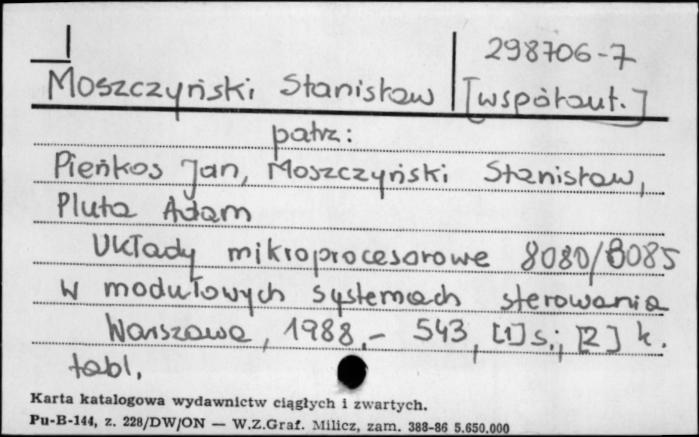 298706-7
Moszczyński Stanisław [współaut.]
patrz:
Pieńkos Jan, Moszczyński Stanisław,
Pluta Adam
Układy mikroprocesorowe 8080/8085
w modułowych systemach sterowania
Warszawa, 1988.- 543, [1] s.; [2] k.
tabl.
Karta katalogowa wydawnictw ciągłych i zwartych.
Pu-B-144, z. 228/DW/ON — W.Z.Graf. Milicz, zam. 388-86 5.650.000